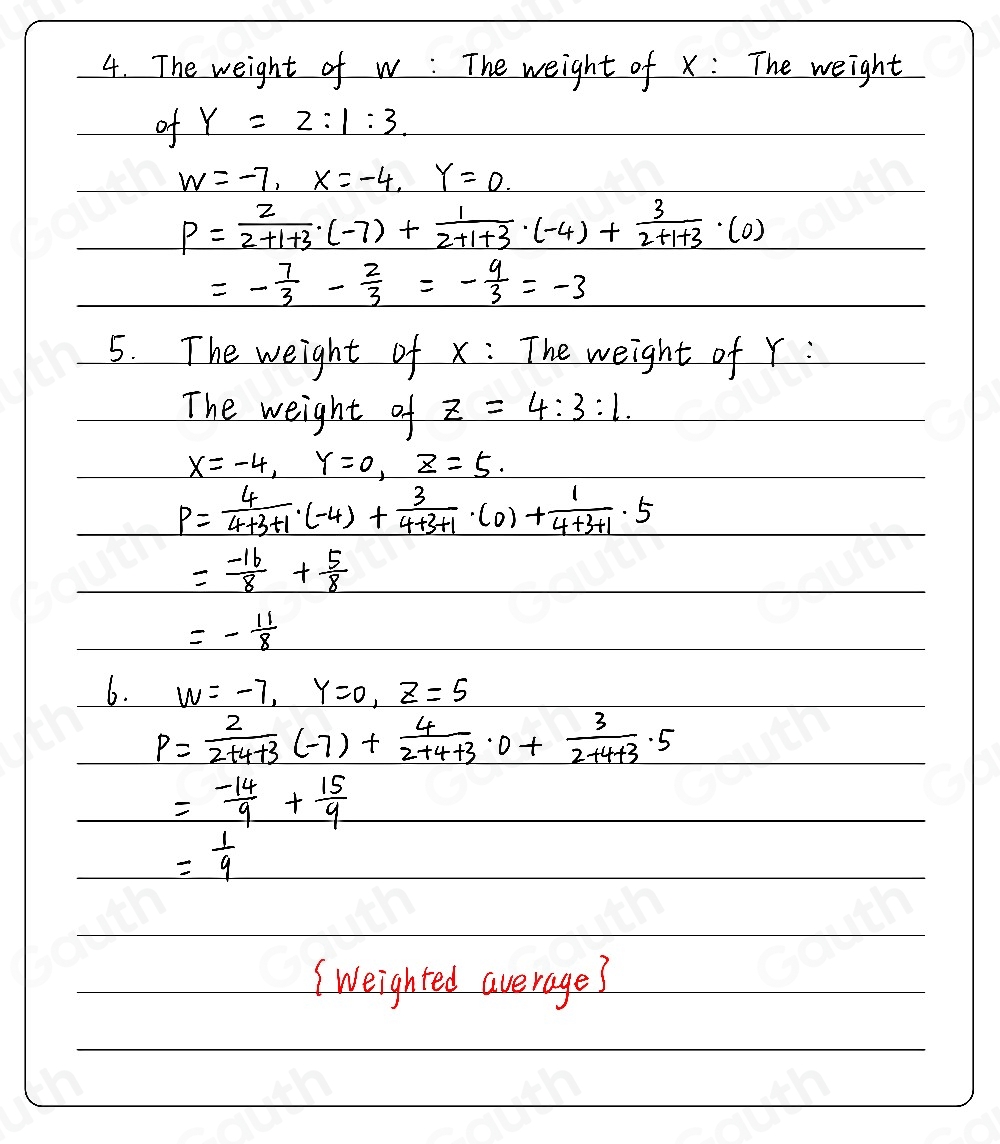 4. The weight of W : The weight of X : The weight
of Y = 2:1:3.
W=-7, X=-4, Y=0.
P = \frac{2}{2+1+3}·(-7) + \frac{1}{2+1+3}·(-4) + \frac{3}{2+1+3}·(0)
= -\frac{7}{3} - \frac{2}{3} = -\frac{9}{3} = -3
5. The weight of X : The weight of Y :
The weight of Z = 4:3:1.
X=-4, Y=0, Z=5.
P = \frac{4}{4+3+1}·(-4) + \frac{3}{4+3+1}·(0) + \frac{1}{4+3+1}·5
= \frac{-16}{8} + \frac{5}{8}
= -\frac{11}{8}
6. W=-7, Y=0, Z=5
P = \frac{2}{2+4+3}(-7) + \frac{4}{2+4+3}·0 + \frac{3}{2+4+3}·5
= \frac{-14}{9} + \frac{15}{9}
= \frac{1}{9}
{Weighted average}
Gauth